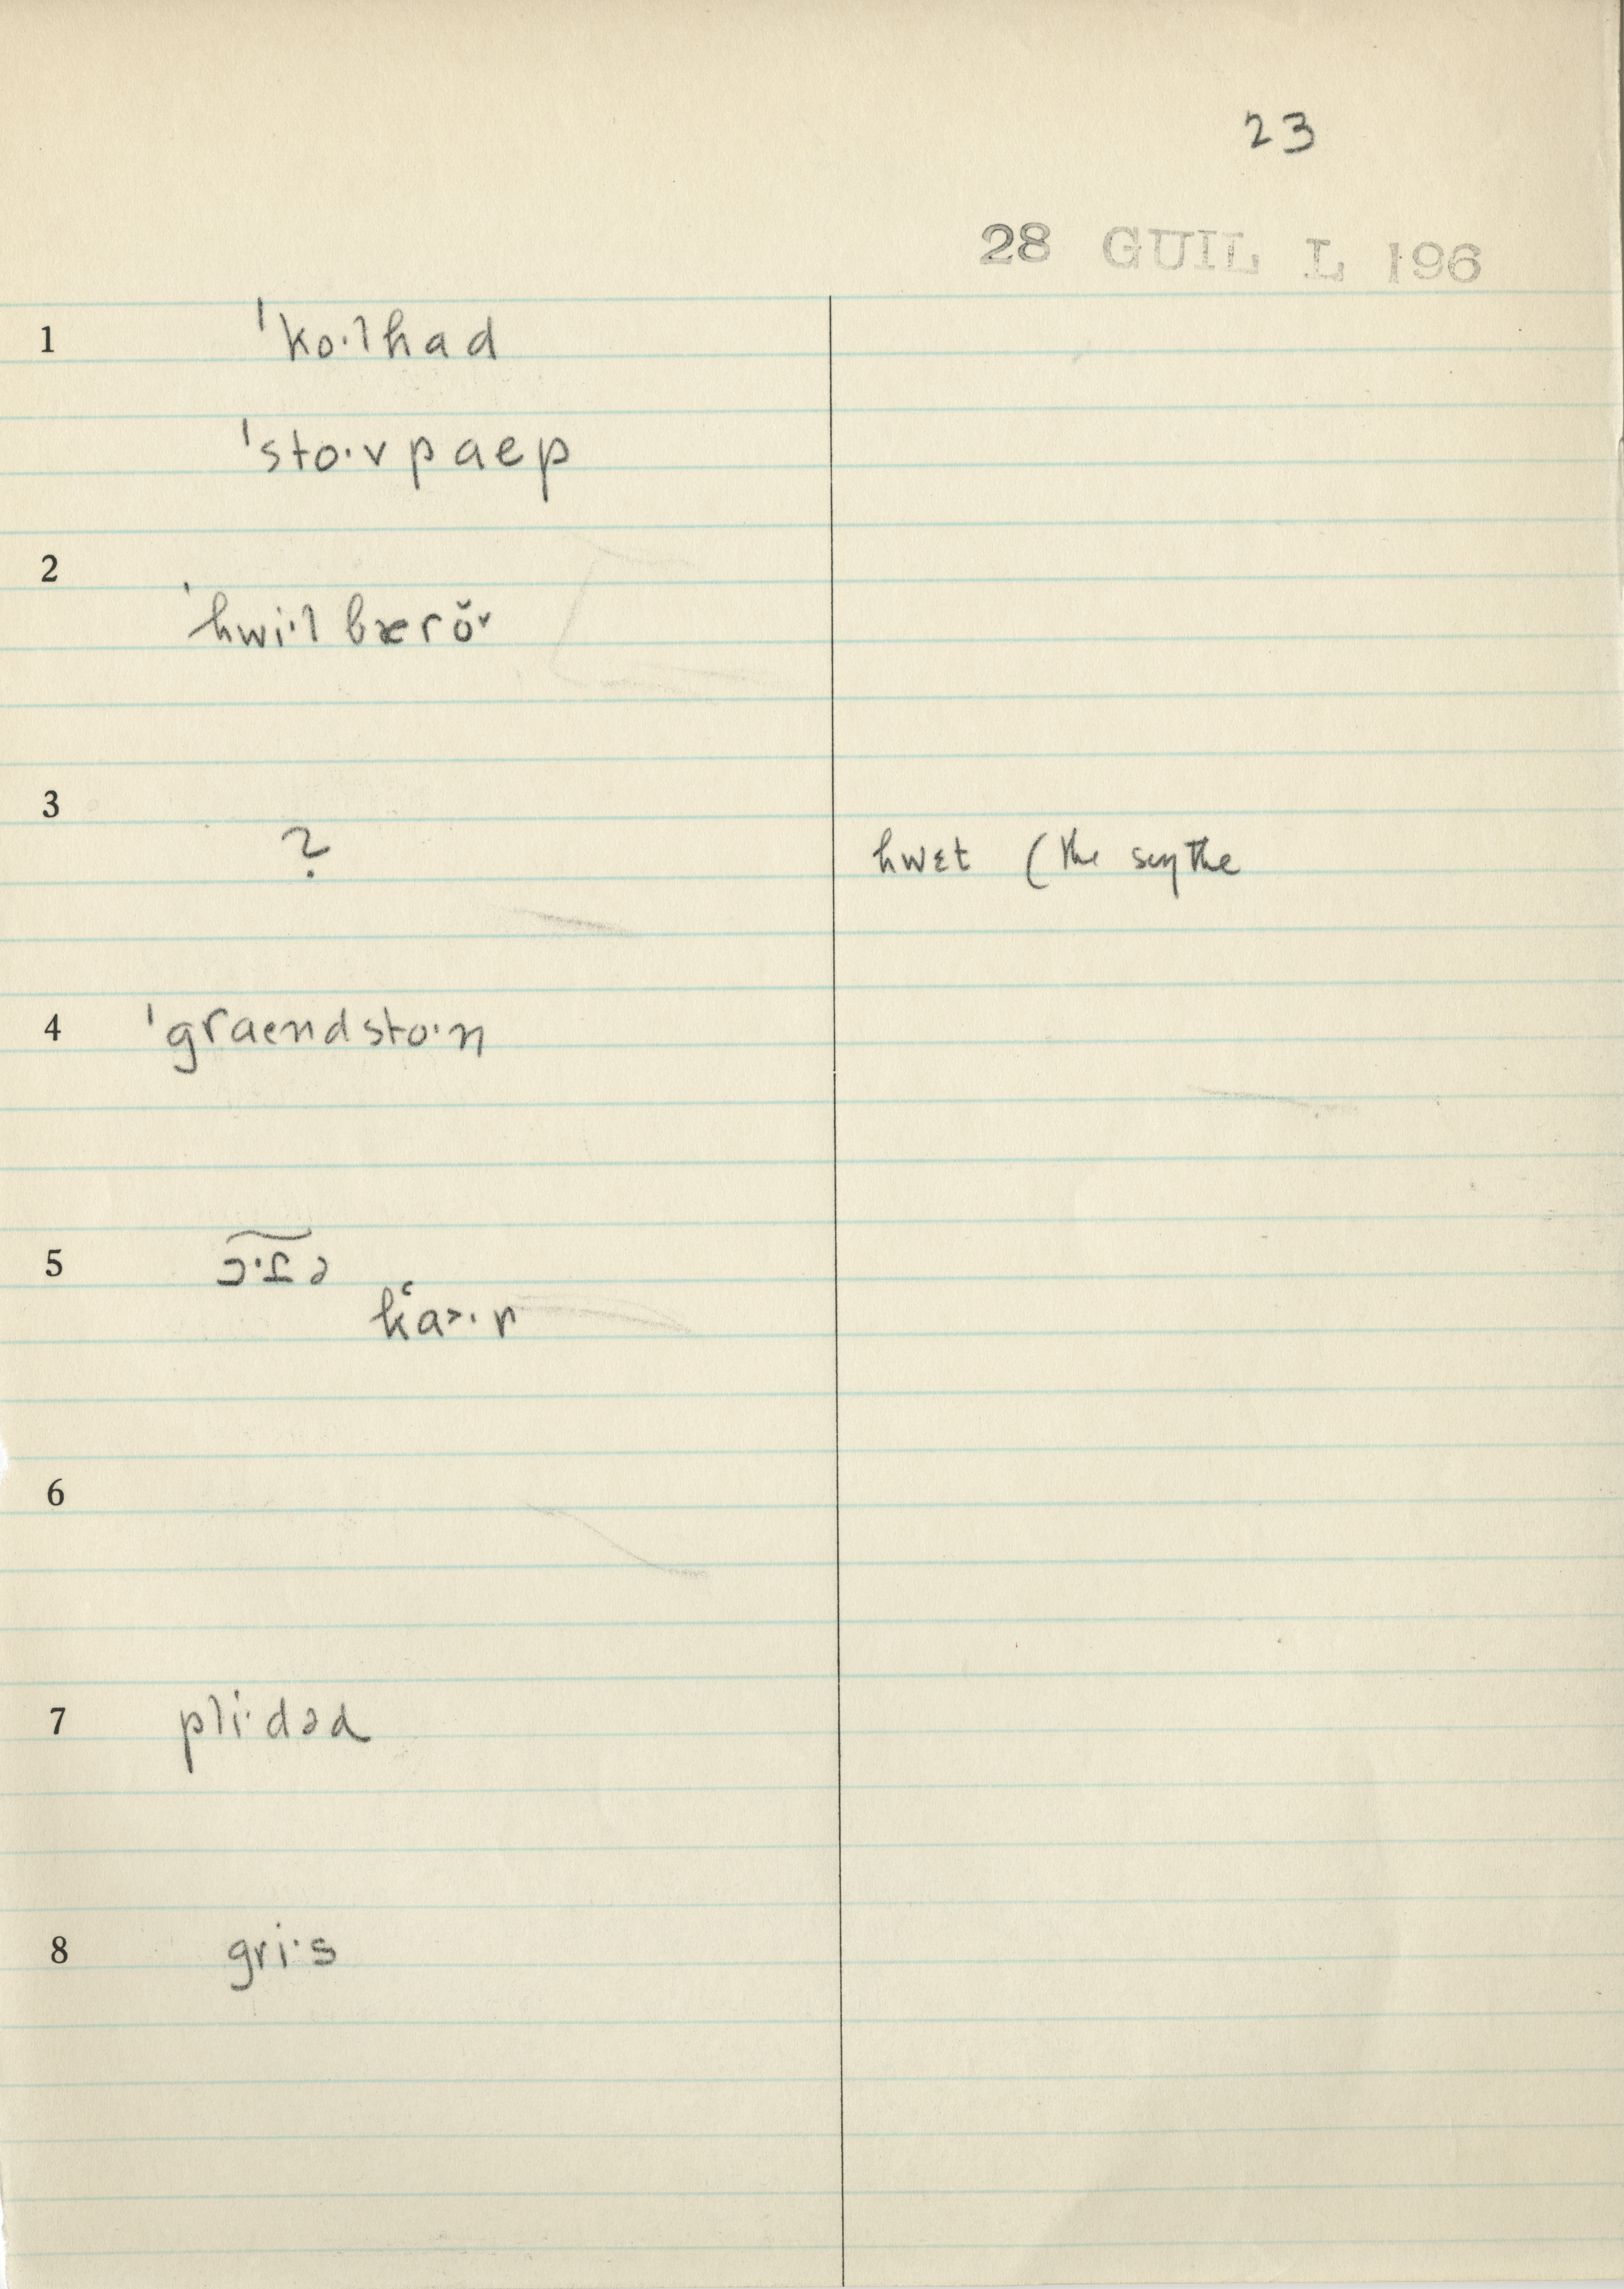 23
28 GUIL L 196
1 ˈko·lhad
ˈsto·vpaep
2 ˈhwi·lbærŏᵛ
3 ? hwɛt (the scythe
4 ˈgraendsto·n
5
6
7 pli·dəd
8 gri·s